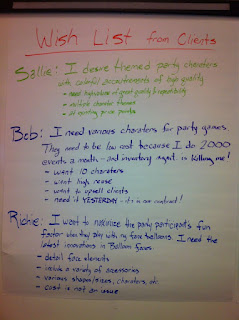 Wish List from Clients
Sallie: I desire themed party charaters
with colorful accoutrements of high quality
- need high volume of great quality & repeatability
- multiple charater themes
- all meeting price points
Bob: I need various charaters for party games.
They need to be low cost because I do 2000
events a month - and inventory mgmt. is killing me!
- want 10 charaters
- want high reuse
- want to upsell clients
- need it YESTERDAY - it's in our contract!
Richie: I want to maximize the party participant's fun
factor when they play with my face balloons. I need the
latest innovations in Balloon faces
- detail face elements
- include a variety of accessories
- various shapes/sizes, charaters, etc.
- cost is not an issue